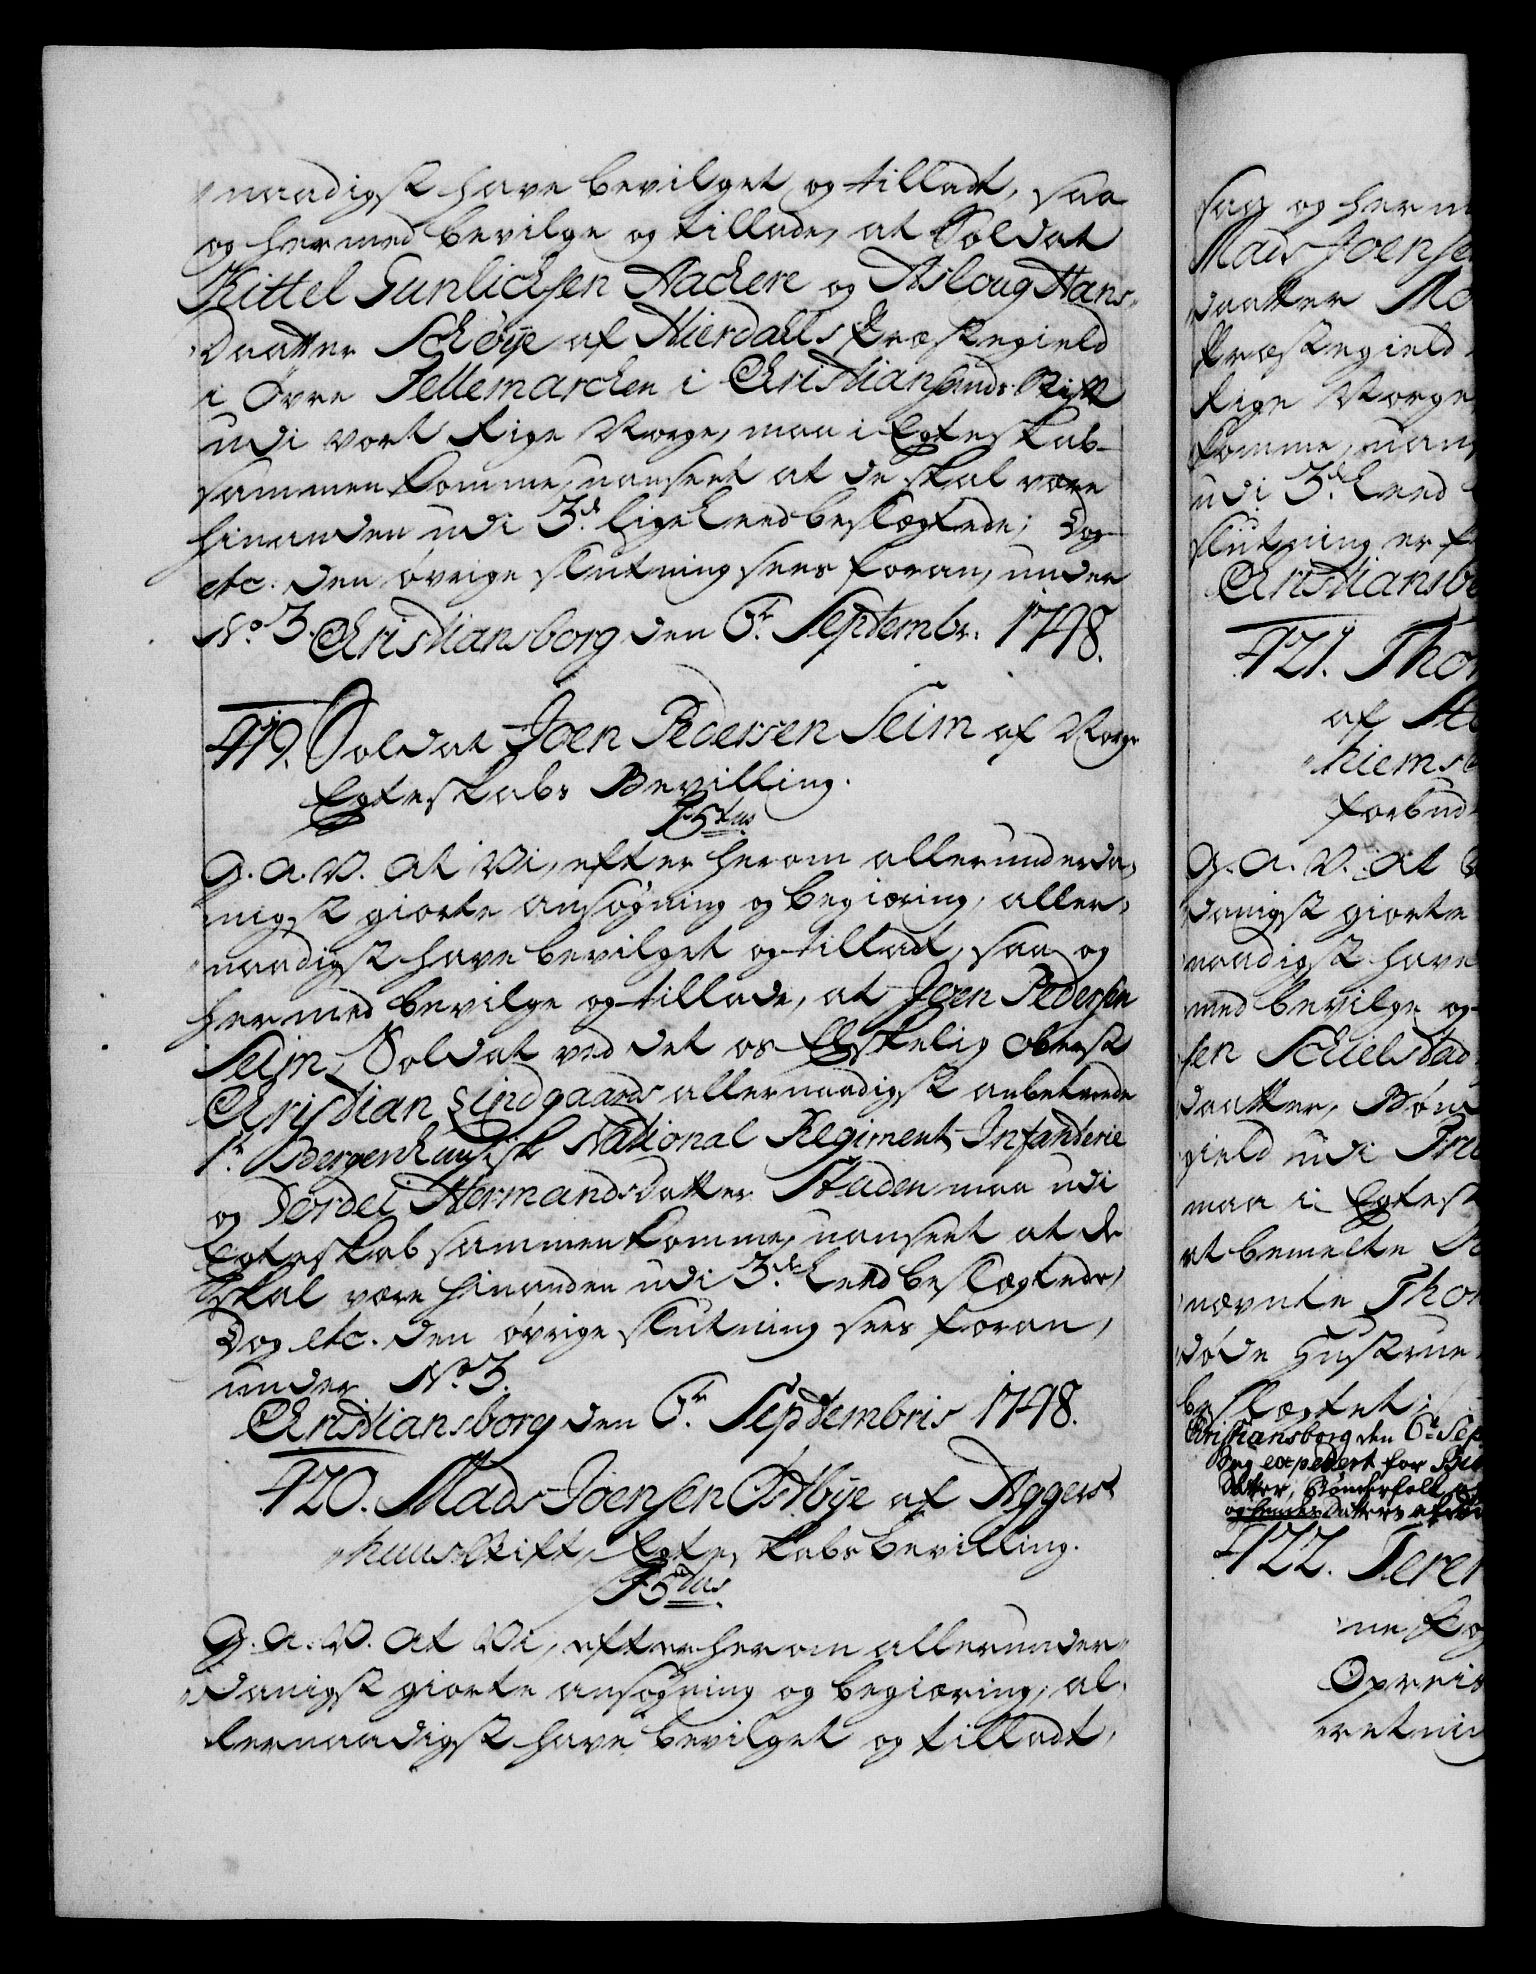 naadigst have bevilget og tilladt, saa
og hermed bevilge og tillade, at Soldat
Kittel Gunlichsen Aachere og Asloug Hans-
Daatter Schöye af Hierdahls Præstegield
i Øvre Tellemarchen i Christiansands Stift
udi vort Rige Norge, maa i Egteskab
sammenkomme, uanseet at de skal være
hinanden udi 3die lige Leed beslægtede; Dog
etc. den øvrige slutning sees foran, under
No 3. Christiansborg den 6te Septembr. 1748.
419. Soldat Joen Pedersen Seim af Norge
Egteskabs Bevilling.
F5tus
G.A.V. At Vi, efter herom allerunderda-
nigst giorte ansøgning og begiæring, aller-
naadigst have bevilget og tilladt, saa og
hermed bevilge og tillade, at Joen Pedersen
Seim, Soldat ved det os Elskelig Oberst
Christian Lindgaards allernaadigst anbetroede
1te Bergenhuusisk National Regiment Infanterie
og Jørdei Hermandsdatter Staden maa udi
Egteskab sammenkomme, uanseet at de
skal være hinanden udi 3die Leed beslægtede,
Dog etc. den øvrige slutning sees foran,
under No 3.
Christiansborg den 6te Septembris 1748.
420. Mads Joensen Ostbye af Aggers-
huus Stift, Egteskabs bevilling.
F5tus
G.A.V. At Vi, efter herom allerunder-
danigst giorte ansøgning og begiæring, al-
lernaadigst have bevilget og tilladt,
saa og herm
Mads Joense
daatter Mo
Præstegield
Rige Norge
komme, uans
udi 3die Leed
slutning er f
Christiansbo
421. Thom
af
hiems
forbud
G.A.V. At V
danigst giorte
naadigst have
med bevilge og
sen Schielstad
daatter, Bønd
gield udi Tru
maa i Egtesk
at bemelte
nævnte Thom
døde Hustrue
beslægtet;
Christiansborg den 6te Sep
Brg expedert for
datter, Bønderfolk
422.
ne
Opreis
retnin